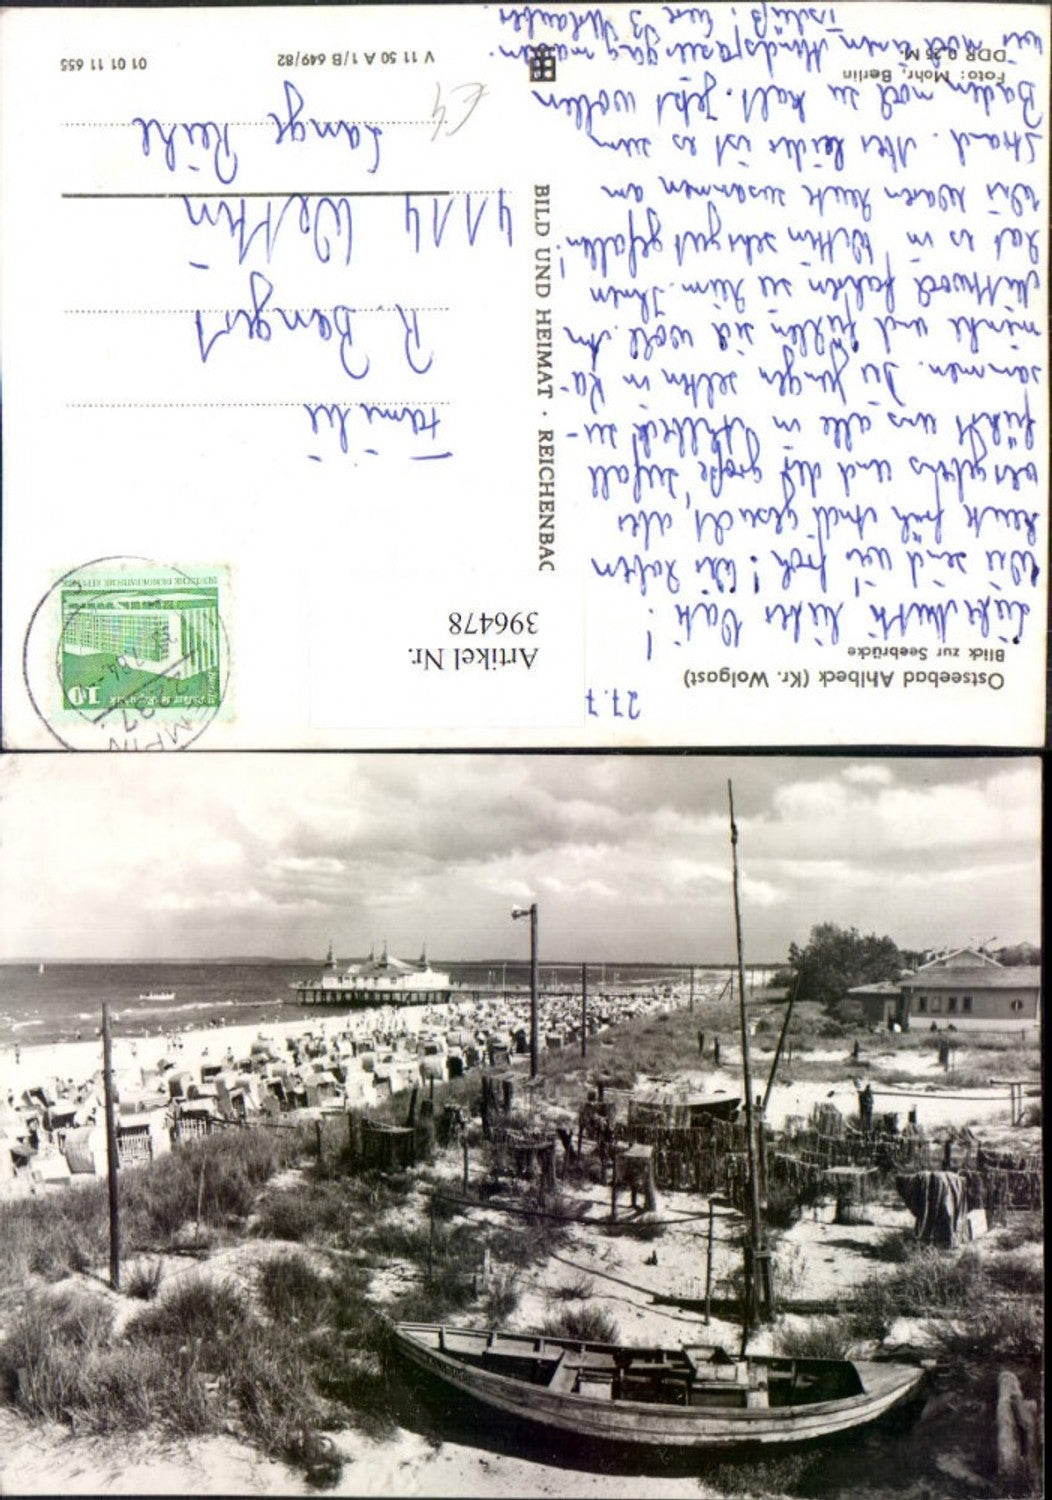 Ostseebad Ahlbeck (Kr. Wolgast)
Blick zur Seebrücke
27.7
Liebe Mutti, lieber Vati!
Wir sind wir froh! Wir haben
heute früh Andi gesucht, aber
vergebens und der große Zufall
führt uns alle in Ahlbeck zu-
sammen. Die Jungen zelten in Ka-
minke und fühlen sich wohl. Am
Mittwoch fahren sie heim. Ihnen
hat es in Wettin sehr gut gefallen!
Wir waren heute zusammen am
Strand. Aber leider ist es zum
Baden noch zu kalt. Jetzt wollen
wir noch einen Abendspaziergang machen.
Tschüß! Eure 3 Urlauber
Foto: Mohr, Berlin
DDR 0,25 M
BILD UND HEIMAT · REICHENBAC
Artikel Nr.
396478
10
DEUTSCHE DEMOKRATISCHE REPUBLIK
EMPIN
2237
Familie
R. Bangert
4114 Wettin
Lange Reihe
€4
V 11 50 A 1/B 649/82
01 01 11 655